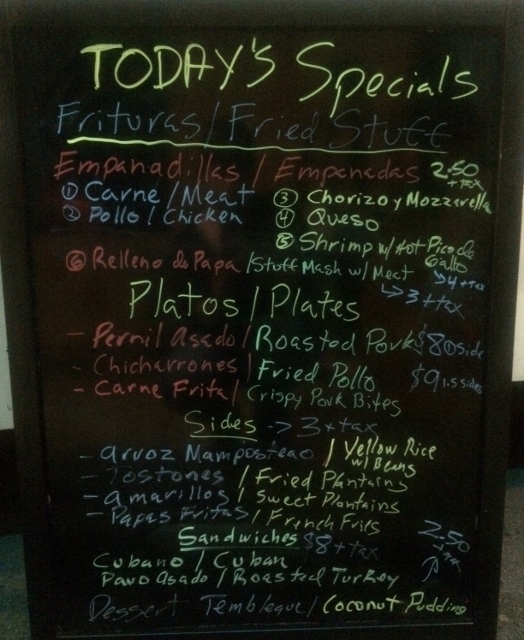 TODAY'S Specials
Frituras/Fried Stuff
Empanadillas / Empanadas 2.50 + tax
① Carne/Meat ③ Chorizo y Mozzarella
② Pollo/Chicken ④ Queso
⑤ Shrimp w/Hot Pico de Gallo → 4 + tax
⑥ Relleno de Papa /Stuff Mash w/ Meat → 3 + tax
Platos/Plates
- Pernil Asado/Roasted Pork $8 0 side
- Chicharrones/Fried Pollo $9 1.5 sides
- Carne Frita/Crispy Pork Bites
Sides -> 3 + tax
- arroz Mamposteao / Yellow Rice w/ Beans
- Tostones / Fried Plantains
- amarillos / Sweet Plantains
- Papas Fritas / French Fries
Sandwiches $8 + tax
Cubano / Cuban
Pavo Asado / Roasted Turkey
2.50
Dessert Tembleque/Coconut Pudding